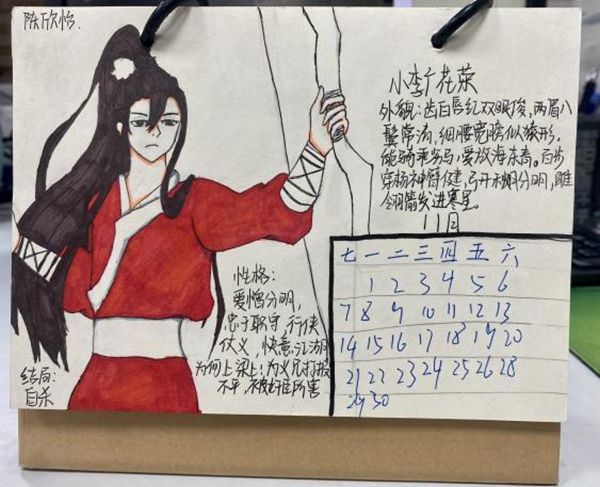 陈欣怡.
小李广花荣
外貌:齿白唇红双眼俊,两眉入
鬓常清,细腰宽膀似猿形,
能骑乖劣马,爱放海东青。百步
穿杨神臂健,弓开秋分明,雕
翎箭发进寒星。
11月
七 一 二 三 四 五 六
1 2 3 4 5 6
7 8 9 10 11 12 13
14 15 16 17 18 19 20
21 22 23 24 25 26 28
29 30
性格:
爱憎分明,
忠于职守,行侠
仗义,快意江湖
为何上梁山:为义兄打抱
不平,被奸臣所害
结局:
自杀